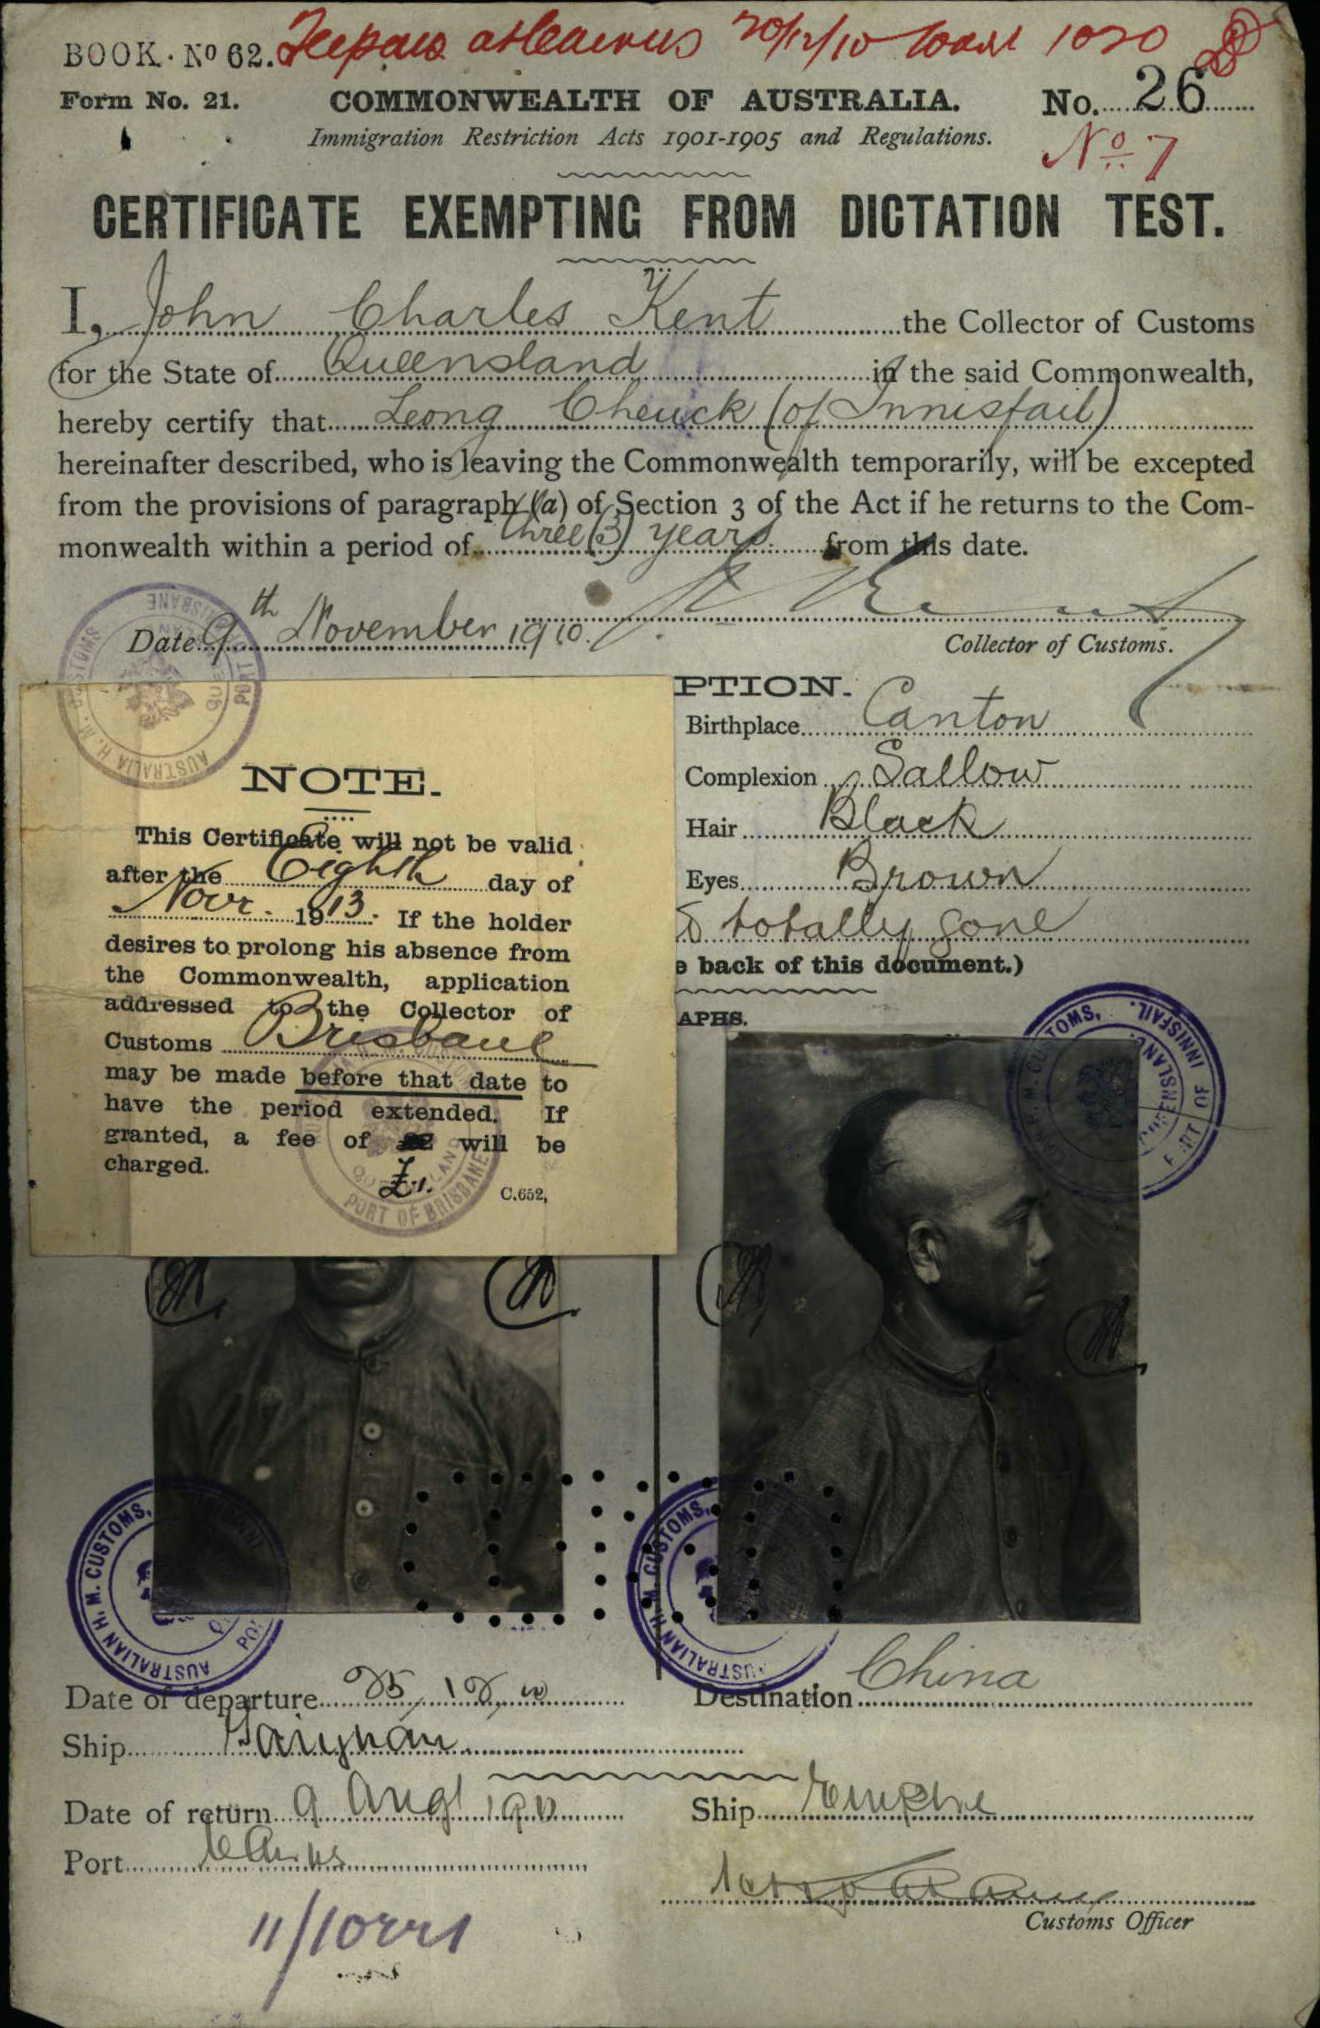 BOOK. No 62. 20/12/10
Form No. 21. COMMONWEALTH OF AUSTRALIA. No. 26
Immigration Restriction Acts 1901-1905 and Regulations. No 7
CERTIFICATE EXEMPTING FROM DICTATION TEST.
I, John Charles Kent the Collector of Customs
for the State of Queensland in the said Commonwealth,
hereby certify that Leong Cheuck (of Innisfail)
hereinafter described, who is leaving the Commonwealth temporarily, will be excepted
from the provisions of paragraph (a) of Section 3 of the Act if he returns to the Com-
monwealth within a period of three (3) years from this date.
Date 9th November 1910.
Collector of Customs.
PTION.
Birthplace Canton
Complexion Sallow
Hair Black
Eyes Brown
totally gone
e back of this document.)
APHS.
NOTE.
This Certificate will not be valid
after the Eighth day of
Novr. 1913. If the holder
desires to prolong his absence from
the Commonwealth, application
addressed to the Collector of
Customs Brisbane
may be made before that date to
have the period extended. If
granted, a fee of will be
charged. £1.
C.652,
PORT OF BRISBANE
AUSTRALIAN H. M. CUSTOMS,
AUSTRALIAN H. M. CUSTOMS,
Date of departure 25/12/10 Destination China
Ship Taiyuan
Date of return 9 Augt Ship Empire
Port Cairns
Customs Officer